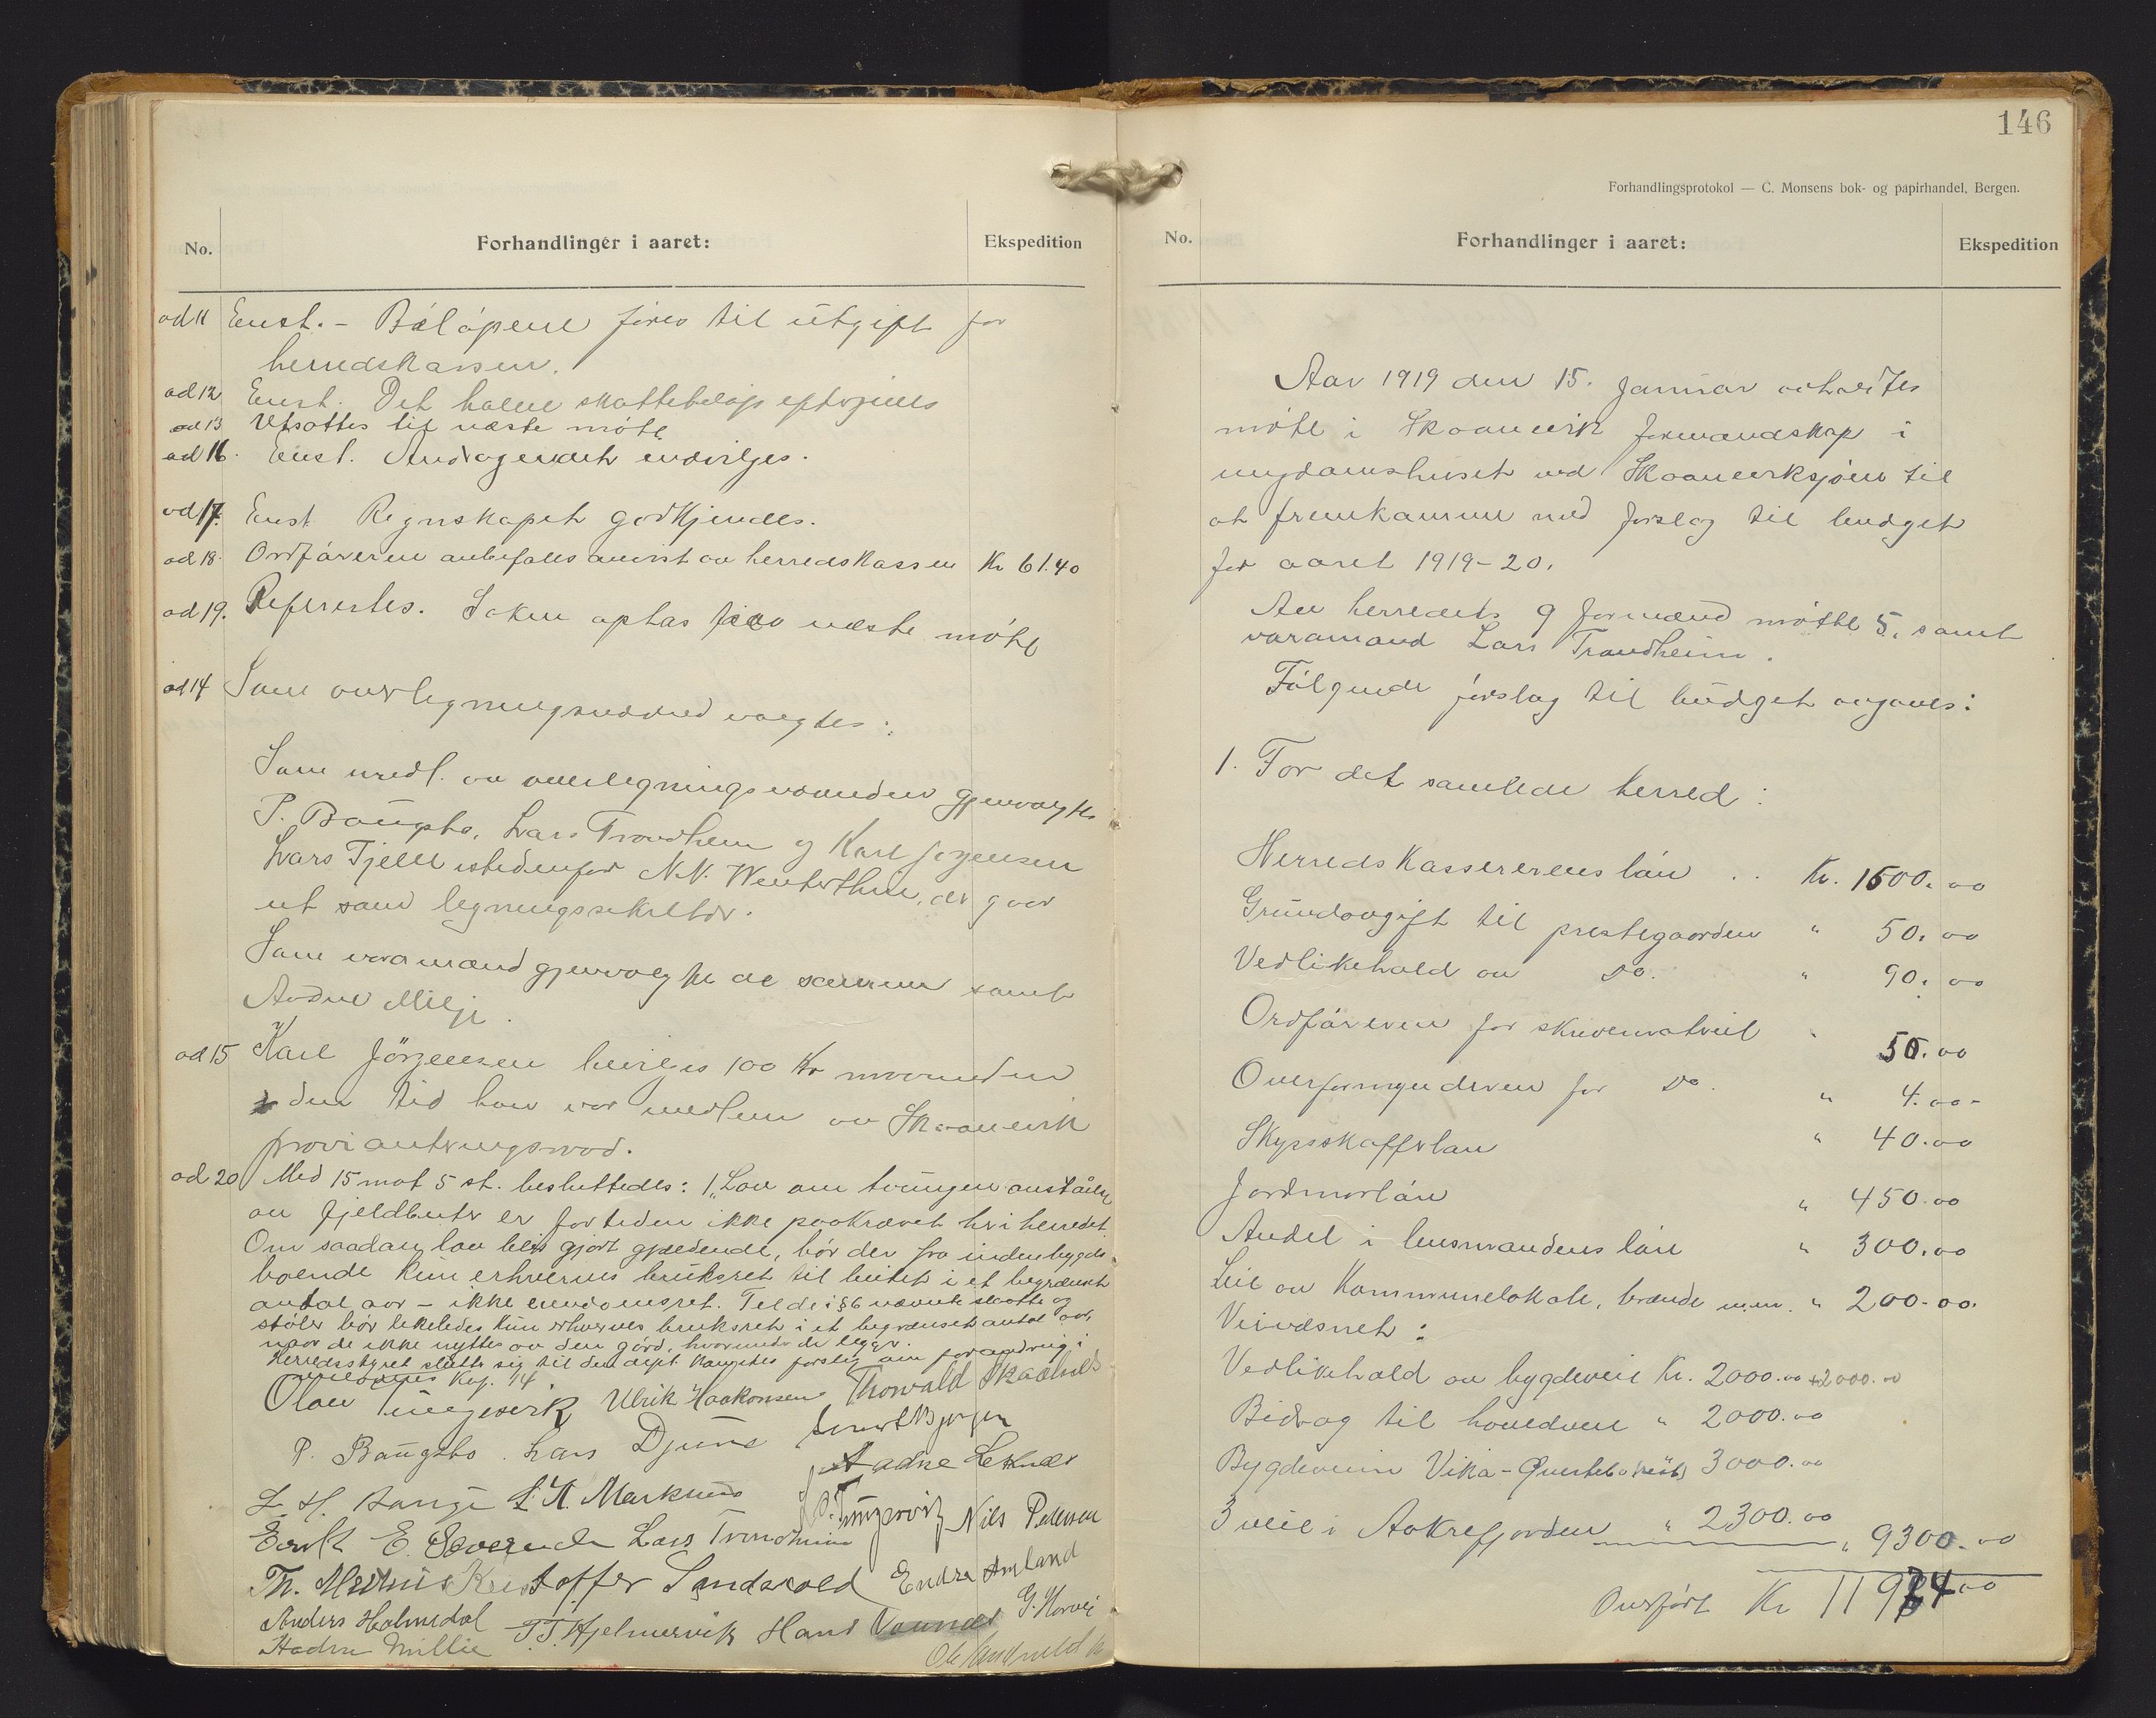 No.
Forhandlinger i aaret:
Ekspedition
ad 11 Enst. - Beløpene føres til utgift for
herredskassen.
ad 12 Enst. Det halve skattebeløp eftergives
ad 13 Utsattes til næste møte
ad 16. Enst. Andragendet indvilges.
ad 17. Enst Regnskapet godkjendes.
ad 18. Ordføreren anbefales anvist av herredskassen Kr 61.40
ad 19. Refereertes. Saken optas paa næste møte
ad 14 Som overligningsnævnd valgtes:
Som medl. av overligningsnævnden gjenvalgtes
P. Baugsto, Lars Trondheim og Karl Jørgensen
Lars Fjelle istedenfor N.N. Wentethun, der gaar
ut som ligningssekretær.
Som varamænd gjenvalgtes de samme samt
Andne Milje.
ad 15 Karl Jørgensen bevilges 100 Kr maaneden
den tid han var medlem av Skaanevik
provianteringsraad.
ad 20 Med 15 mot 5 st. besluttedes: 1, Lov om tvungen avstaaelse
av fjeldbeiter er for tiden ikke paakrævet her i herredet.
Om saadan lov blir gjort gjældende, bør der fra indenbygds
boende kun erhverves bruksret til beitet i et begrænset
antal aar - ikke eiendomsret. Til de i § 6 nævnte slaatte og
støler bør likeledes kun erhverves bruksret i et begrænset antal aar,
naar de ikke nyttes av den gård, hvorunder de ligger.
Herredsstyret slutter sig til den dept. forslag om forandring i
Kap. 14
Olav Tungesvik Ulrik Haakonsen Thorvald Skaalnes
P. Baugsto. Lars Djuve
Aadne Leknes
L. H. Markhus
Tungesvik Nils Pedersen
E. Severeide Lars Trondheim
Th. Milhus Kristoffer Sandvold Endre Amland
Anders Holmedal T.T. Hjelmervik Hans Vannes G. Horvei
Hadne Millie
146
Forhandlingsprotokol — C. Monsens bok- og papirhandel, Bergen.
No.
Forhandlinger i aaret:
Ekspedition
Aar 1919 den 15. januar avholdtes
møte i Skaanevik formandskap i
ungdomshuset ved Skaaneviksjøen til
at fremkomme med forslag til budget
for aaret 1919-20.
Av herredets 9 formænd møtte 5, samt
varamand Lars Trondheim.
Følgende forslag til budget avgaves:
1. For det samlede herred:
Herredskassererens løn .. Kr. 1500.00
Grundavgift til prestegaarden " 50.00
Vedlikehold av Do. " 90.00
Ordføreren for skrivematriel " 50.00
Overformynderen for Do. " 4.00-
Skysskafferløn " 40.00
Jordmorløn " 450.00
Andel i lensmandens løn " 300.00
Leie av Kommunelokale, brænde m.m. " 200.00
Veivæsnet:
Vedlikehold av bygdeveie Kr. 2000.00 + 2000.00
Bidrag til hovedveie " 2000.00
Bygdeveien Vika - 3000.00
3 veie i Aakrefjorden " 2300.00 " 9300.00
Overført Kr 11984.00